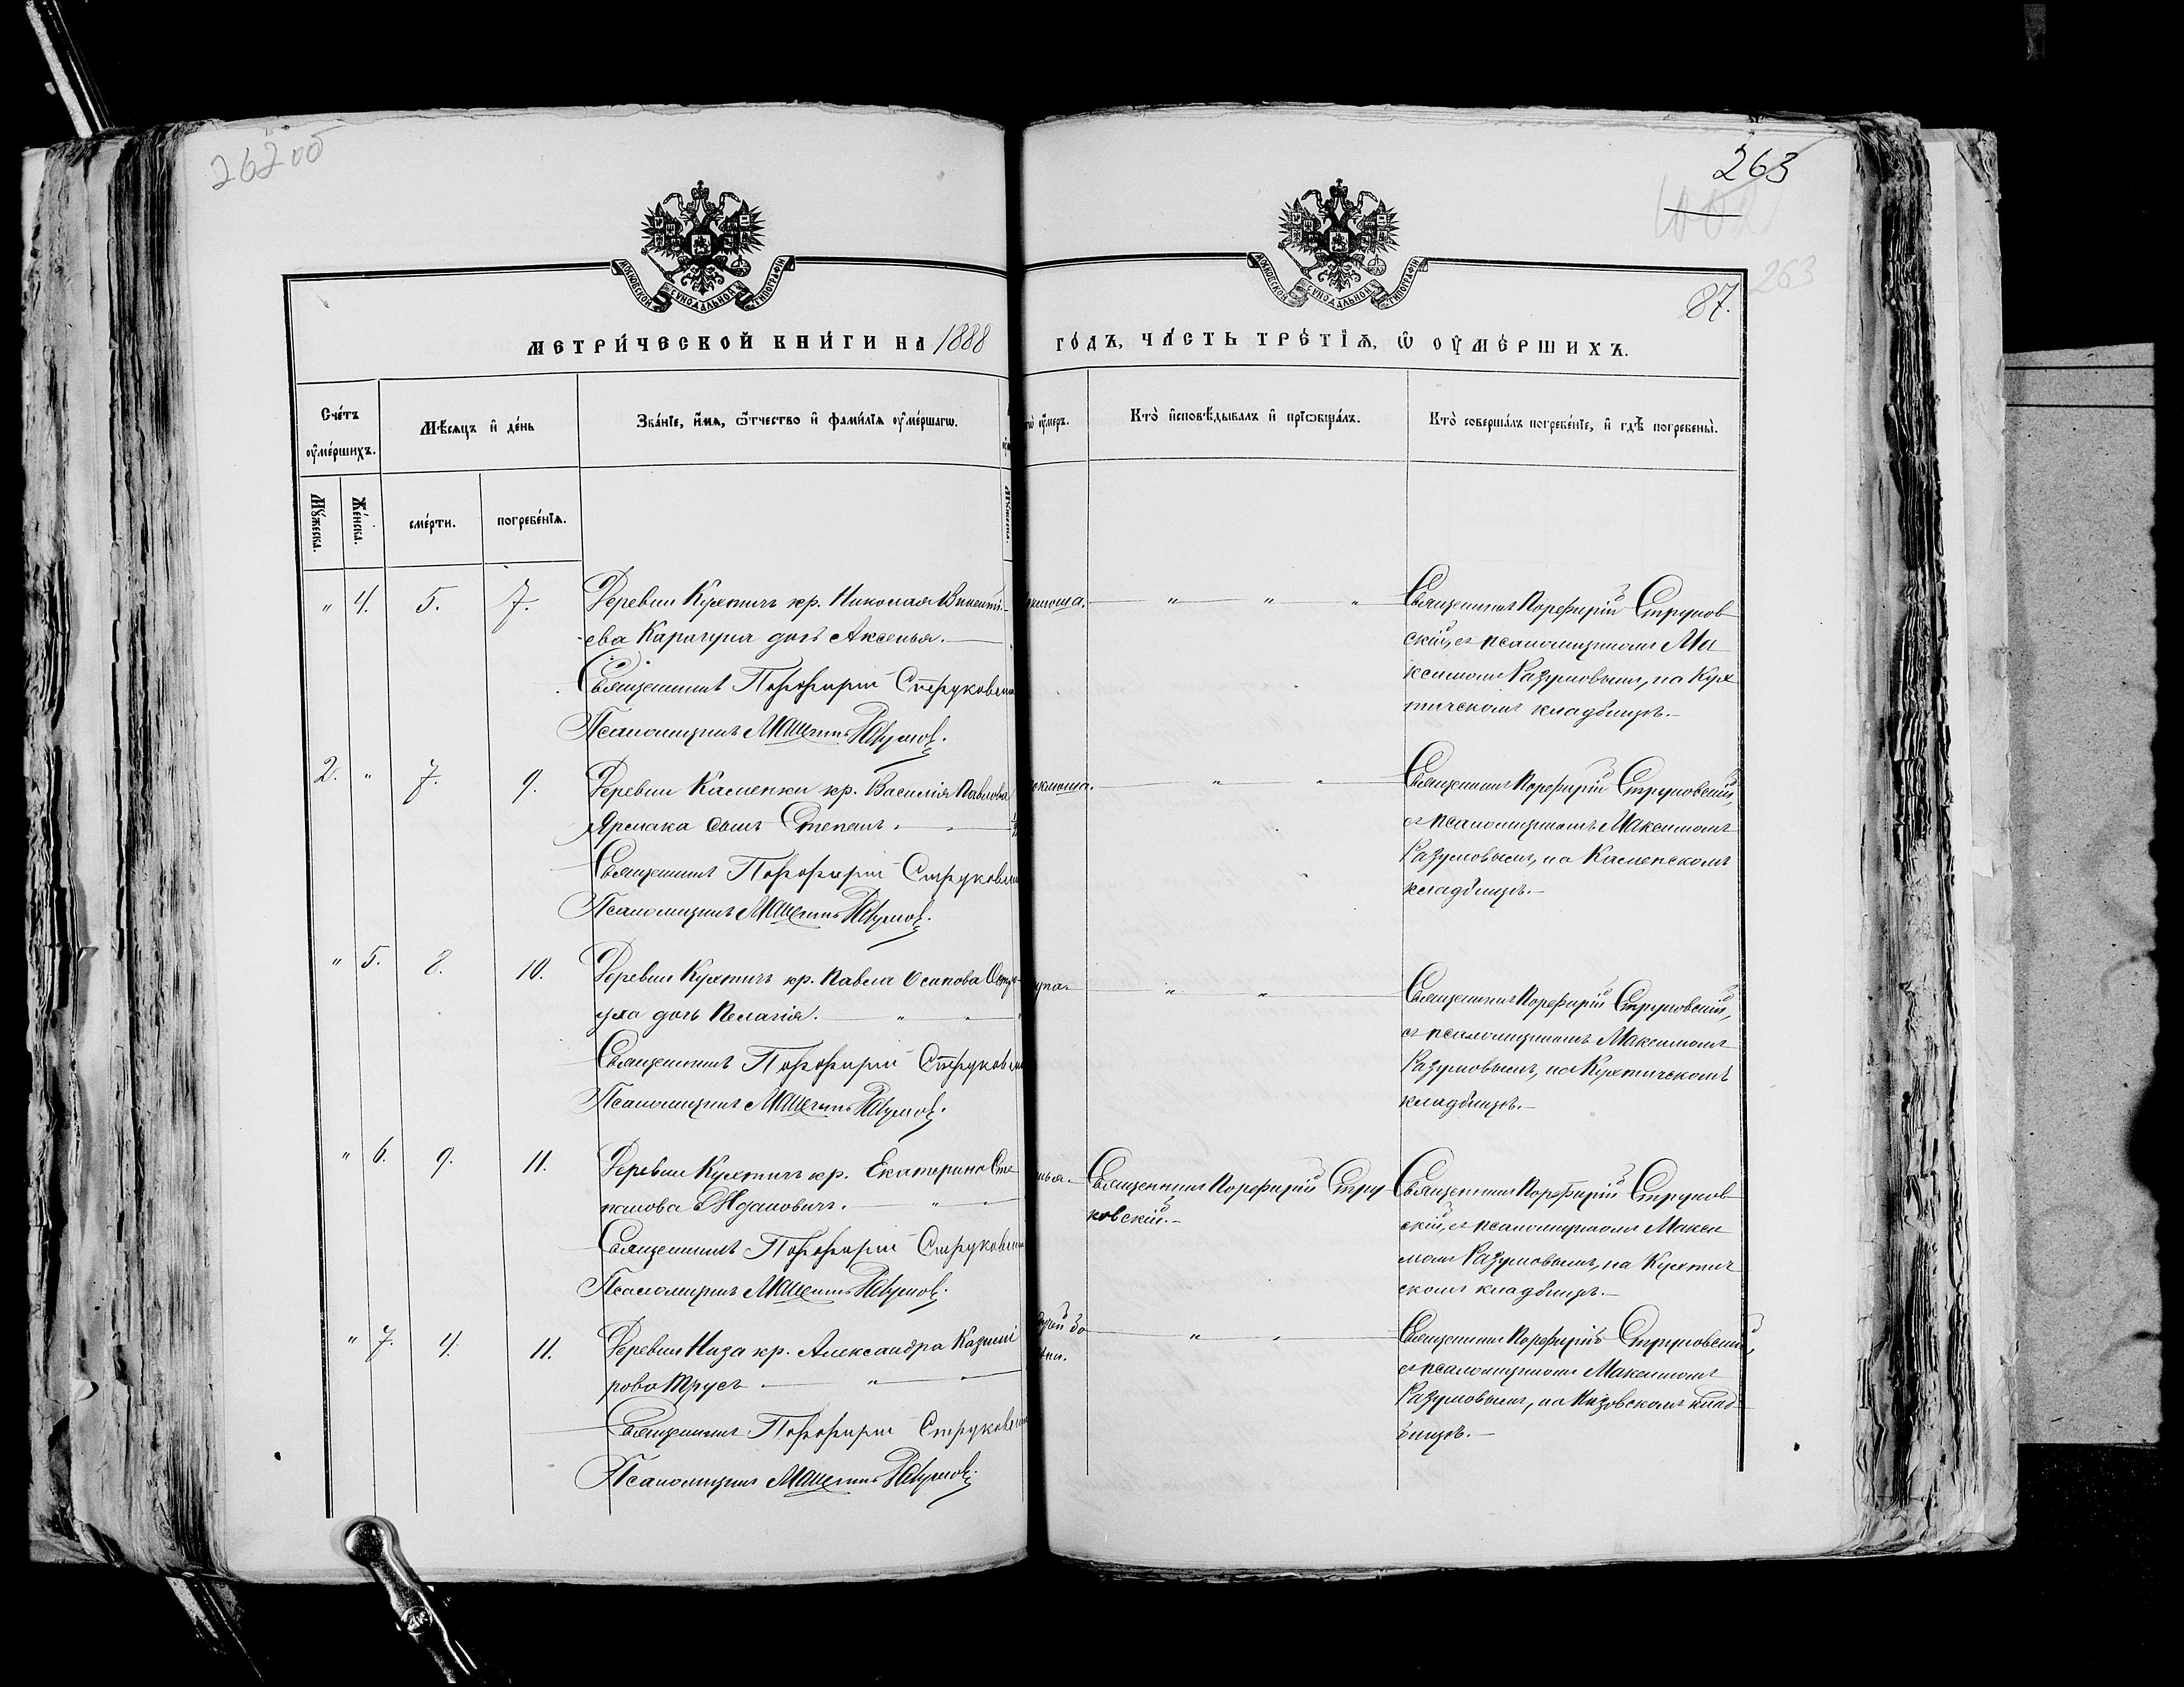 262 об
263
263
87.
МОСКОВСКОЙ СѴНОДАЛЬНОЙ ТИПОГРАФІИ
МОСКОВСКОЙ СѴНОДАЛЬНОЙ ТИПОГРАФІИ
МЕТРИ́ЧЕСКОЙ КНИ́ГИ НА 1888 ГО́ДЪ, ЧА́СТЬ ТРЕ́ТІѦ, Ѡ҆ ОУ҆МЕ́РШИХЪ.
Сче́тъ
оу҆ме́ршихъ.
Мѣ́сяцъ и҆ де́нь
Зва́нїе, и҆́мѧ, ѻ҆́тчество и҆ фами́лїѧ оу҆ме́ршагѡ.
оу҆́меръ.
Кто̀ и҆сповѣ́дывалъ и҆ прїѡбща́лъ.
Кто̀ соверша́лъ погребе́нїе, и҆ гдѣ̀ погребены̀.
Мꙋ́жеска.
Же́нска.
сме́рти.
погребе́нїѧ.
" 4. 5. 7. Деревни Кухтичъ кр. Николая Викенті-
ева Карагуна дочь Аксенья.
Священникъ Порфирій Струковскій
Псаломщикъ Максимъ Разумов.
коклюша. " " "
Священникъ Порфирій Струков
скій, съ псаломщикомъ Ма
ксимомъ Разумовымъ, на Кух
тичскомъ кладбищѣ.
2. " 7. 9. Деревни Каменки кр. Василія Павлова
Ярмака сынъ Степанъ.
Священникъ Порфирій Струковскій
Псаломщикъ Максимъ Разумов.
коклюша. " "
Священникъ Порфирій Струковскій,
съ псаломщикомъ Максимомъ
Разумовымъ, на Каменскомъ
кладбищѣ.
" 5. 8. 10. Деревни Кухтичъ кр. Павла Осипова
уха дочь Пелагія. " "
Священникъ Порфирій Струковскій
Псаломщикъ Максимъ Разумов.
крупа " "
Священникъ Порфирій Струковскій,
съ псаломщикомъ Максимомъ
Разумовымъ, на Кухтичскомъ
кладбищѣ.
" 6. 9. 11. Деревни Кухтичъ кр. Екатерина Сте
панова Ждановичъ. "
Священникъ Порфирій Струковскій
Псаломщикъ Максимъ Разумов.
Священникъ Порфирій Стру
ковскій.
Священникъ Порфирій Струков
скій, съ псаломщикомъ Макси
момъ Разумовымъ, на Кухтич
скомъ кладбищѣ.
" 7. 4. 11. Деревни Низа кр. Александра Казимі
рова Трусъ " "
Священникъ Порфирій Струковскій
Псаломщикъ Максимъ Разумов.
" "
Священникъ Порфирій Струковскій,
съ псаломщикомъ Максимомъ
Разумовымъ, на Низовскомъ клад
бищѣ.